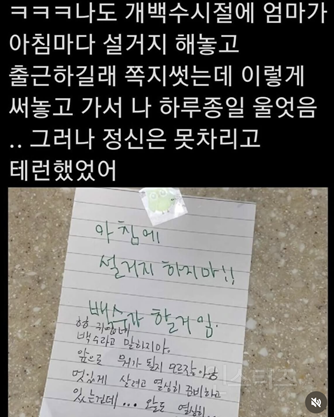 ㅋㅋㅋ나도 개백수시절에 엄마가
아침마다 설거지 해놓고
출근하길래 쪽지썻는데 이렇게
써놓고 가서 나 하루종일 울엇음
.. 그러나 정신은 못차리고
테런했었어
아침에
설거지 하지마!!
백수가 할거임.
백수라고 말하지마.
앞으로 뭐가 될지 모르잖아
멋있게 살려고 열심히 준비하고
있는건데 ...